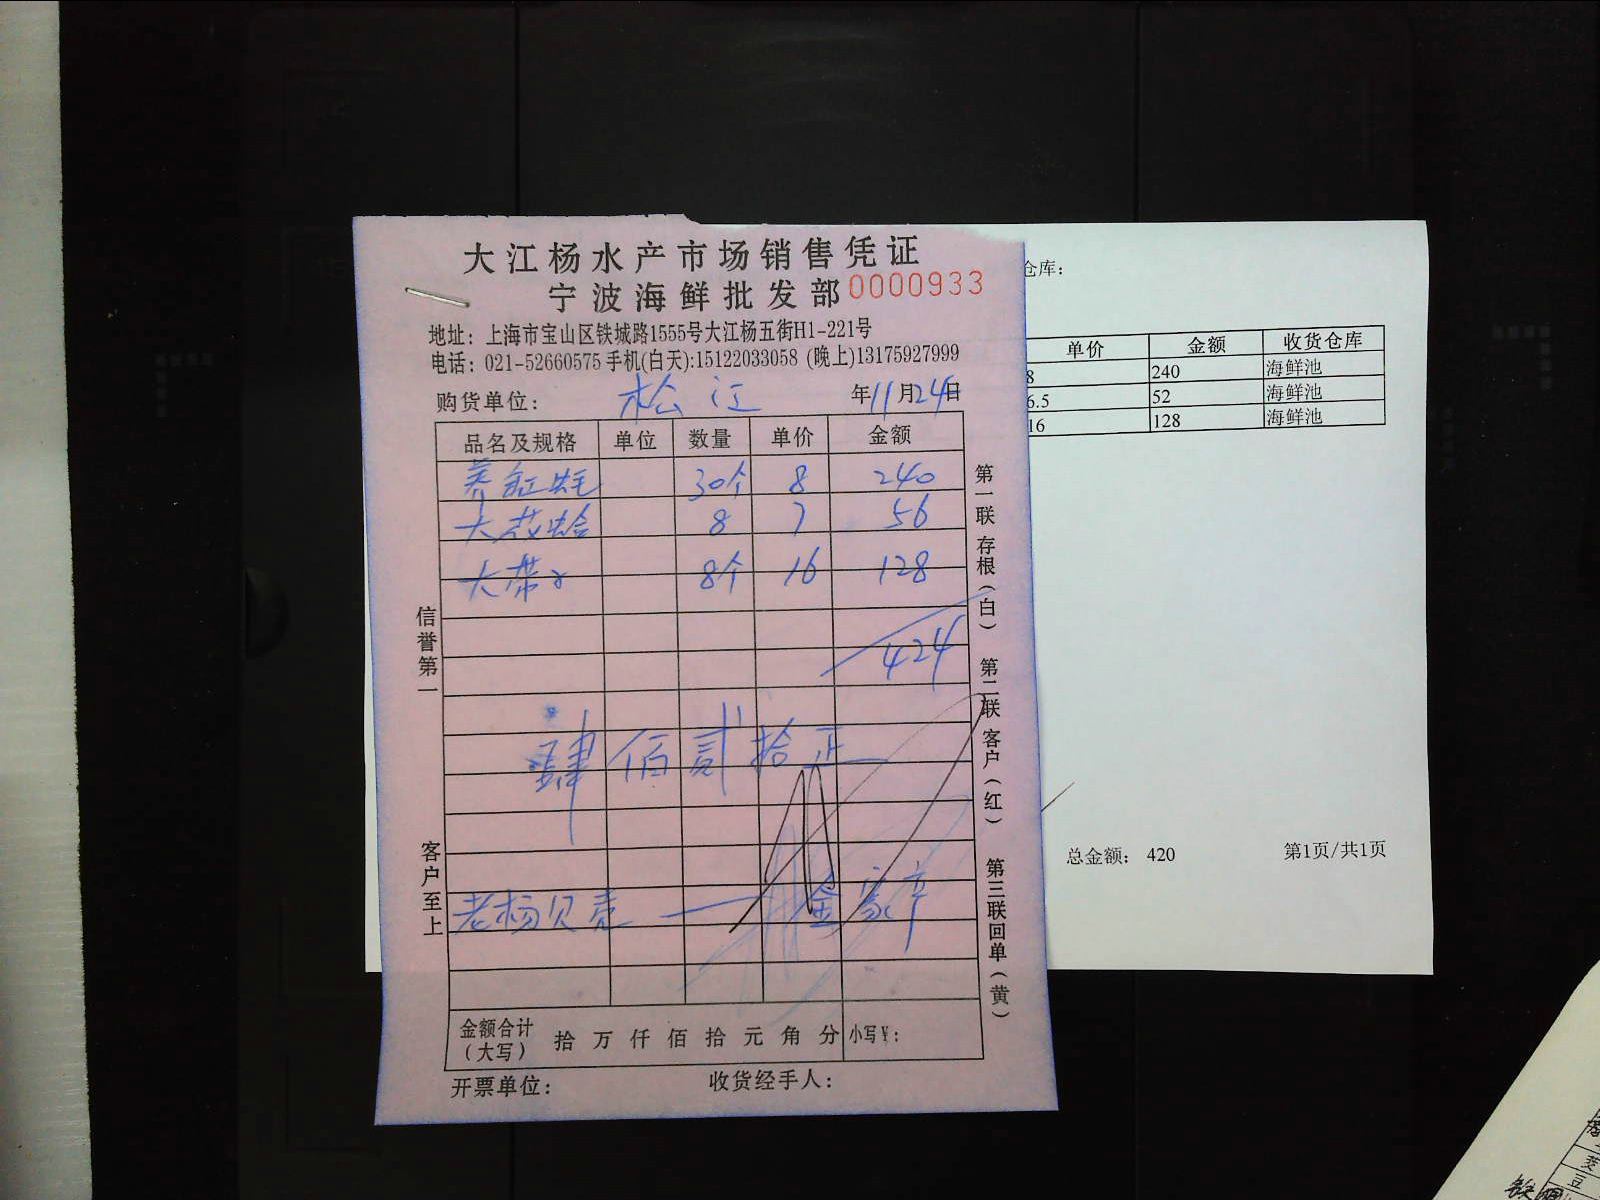 大江杨水产市场销售凭证
宁波海鲜批发部 0000933
地址：上海市宝山区铁城路1555号大江杨五街H1-221号
电话：021-52660575 手机(白天):15122033058 (晚上)13175927999
购货单位： 松江 年11月24日
品名及规格 单位 数量 单价 金额
30个 8 240
8 7 56
大带子 8个 16 128
424
肆佰贰拾正
老杨贝壳
金额合计（大写） 拾 万 仟 佰 拾 元 角 分 小写￥：
开票单位： 收货经手人：
信誉第一
客户至上
第一联存根（白）
第二联客户（红）
第三联回单（黄）
仓库：
单价 金额 收货仓库
8 240 海鲜池
6.5 52 海鲜池
16 128 海鲜池
总金额： 420 第1页/共1页